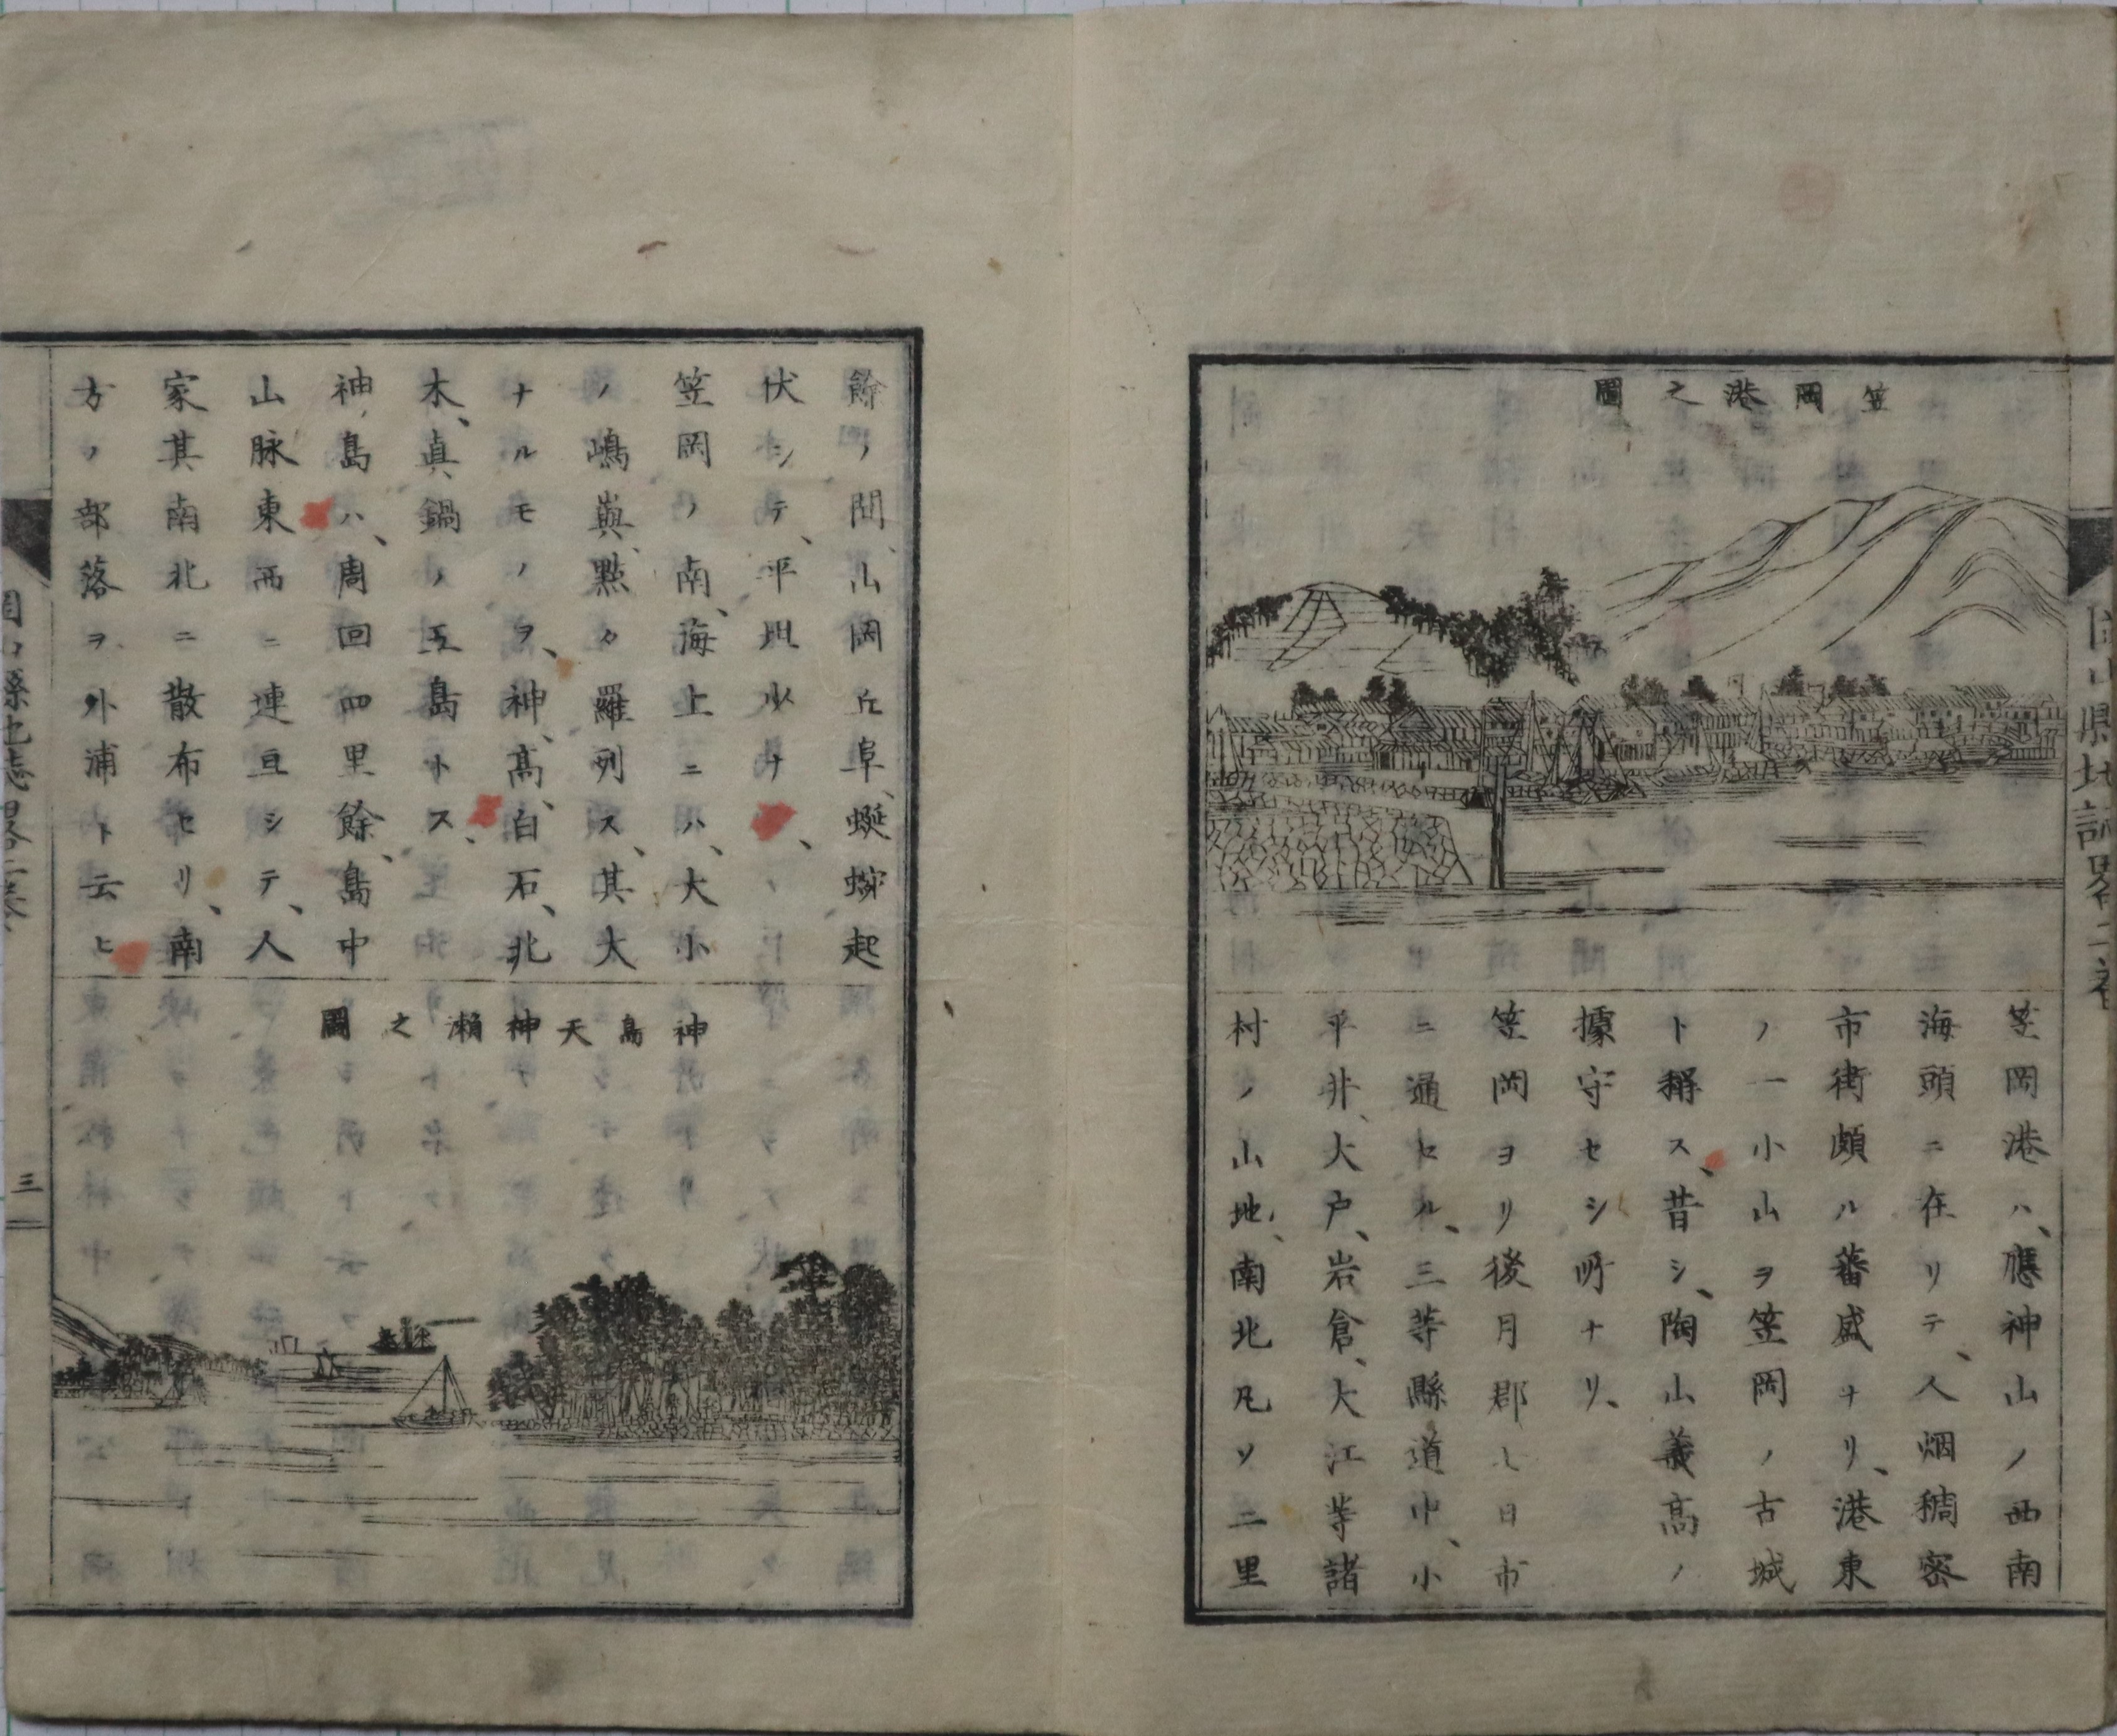 笠岡港之圖
笠岡港ハ、應神山ノ西南
海頭ニ在リテ、人烟稠密
市街頗ル蕃盛ナリ、港東
ノ一小山ヲ笠岡ノ古城
ト稱ス、昔シ、陶山義高ノ
據守セシ所ナリ、
笠岡ヨリ後月郡七日市
ニ通セル、三等縣道中、小
平井、大戸、岩倉、大江等諸
村ノ山地、南北凡ソ二里
餘ノ間、山岡丘阜、蜒蜿起
伏シテ、平坦少ナ、
笠岡ノ南、海上ニハ、大小
ノ嶋嶼、點々羅列ス、其大
ナルモノヲ、神、高、白石、北
木、真鍋ノ五島トス、
神ノ島ハ、周回四里餘、島中
山脉東西ニ連亘シテ、人
家其南北ニ散布セリ、南
方ノ部落ヲ外浦ト云ヒ
神島天神瀬之圖
三